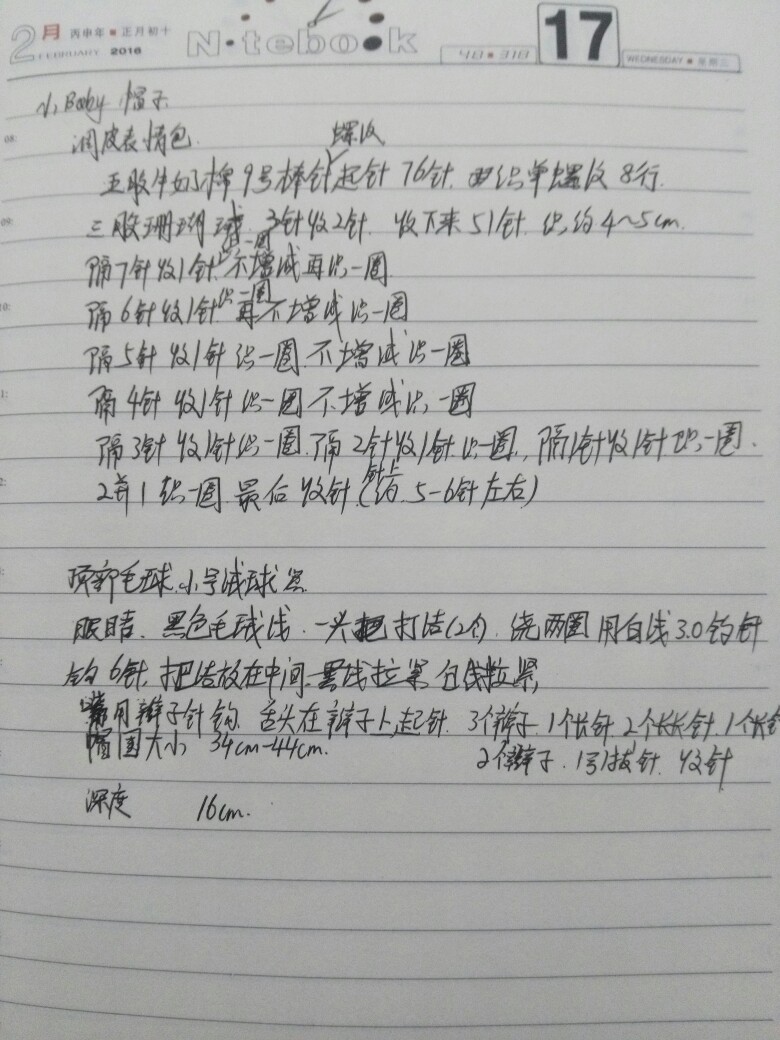 2月 丙申年 正月初十
FEBRUARY 2016
Notebook
48 318
17
WEDNESDAY 星期三
小Baby 帽子
调皮表情包 螺纹
五股牛奶棉 9号棒针起针 76针. 织单螺纹 8行.
三股珊瑚球 3针收2针. 收下来 51针. 织约 4~5cm.
隔7针收1针织一圈不增减再织一圈
隔6针收1针织一圈再不增减织一圈
隔5针收1针织一圈. 不增减织一圈
隔4针收1针织一圈 不增减织一圈
隔3针收1针织一圈. 隔2针收1针织一圈, 隔1针收1针织一圈.
2并1织一圈 最后收针 (针上约 5-6针左右)
顶部毛球.小号绒球器
眼睛. 黑色毛球线. 一头打结(2个). 绕两圈 用白线3.0钩针
钩6针. 把结放在中间. 黑线拉紧 白线拉紧
嘴用辫子针钩 舌头在辫子上起针. 3个辫子. 1个长针 2个长长针. 1个长针
2个辫子. 1引拔针. 收针
帽围大小 34cm-44cm.
深度 16cm.